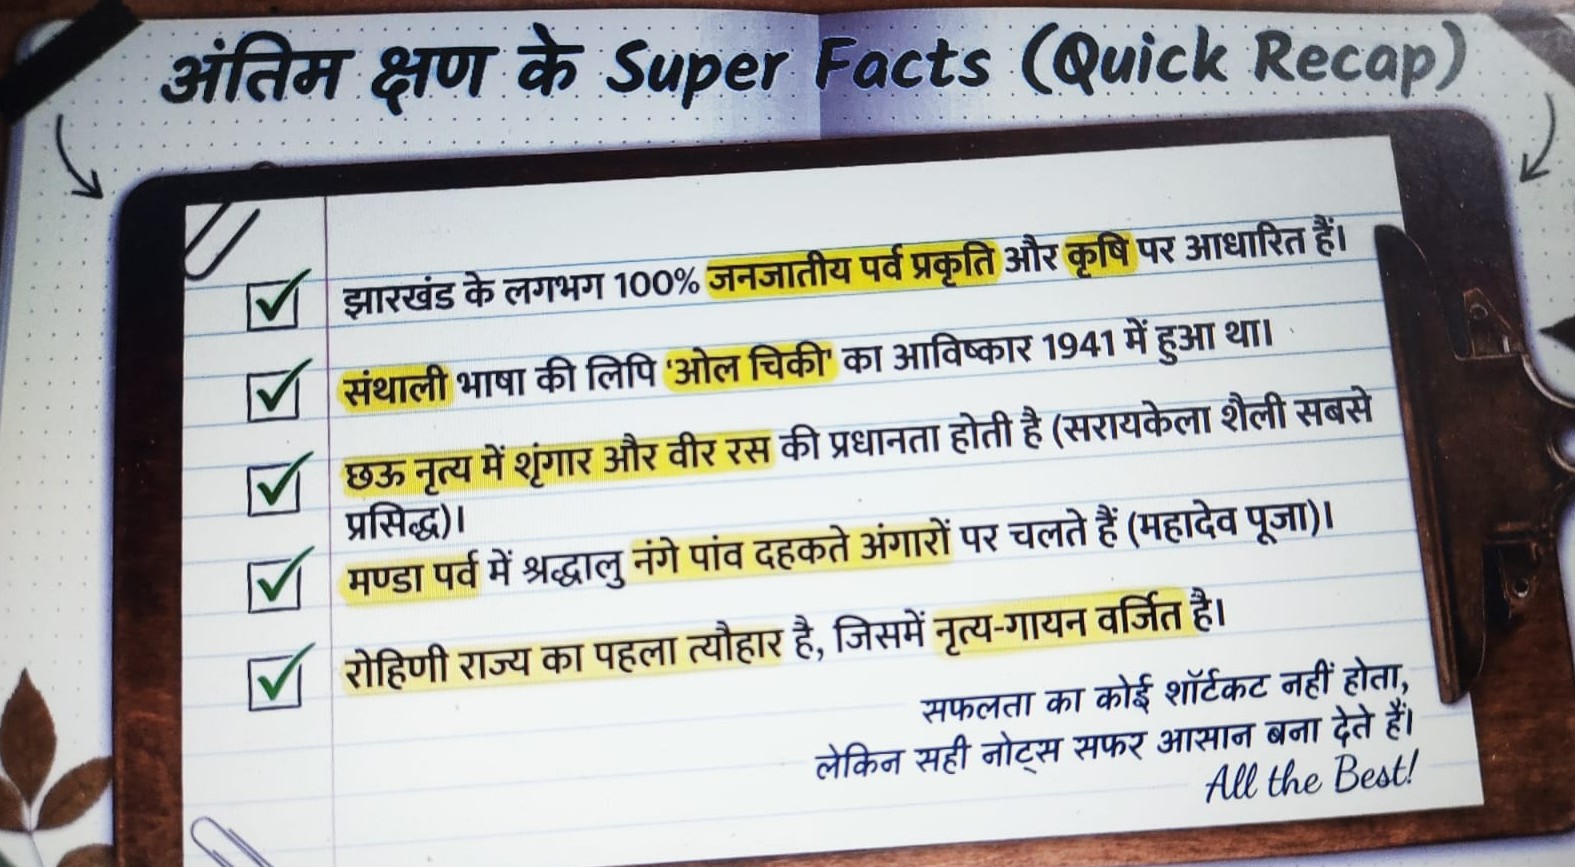 अंतिम क्षण के Super Facts (Quick Recap)
झारखंड के लगभग 100% जनजातीय पर्व प्रकृति और कृषि पर आधारित हैं।
संथाली भाषा की लिपि 'ओल चिकी' का आविष्कार 1941 में हुआ था।
छऊ नृत्य में शृंगार और वीर रस की प्रधानता होती है (सरायकेला शैली सबसे
प्रसिद्ध)।
मण्डा पर्व में श्रद्धालु नंगे पांव दहकते अंगारों पर चलते हैं (महादेव पूजा)।
रोहिणी राज्य का पहला त्यौहार है, जिसमें नृत्य-गायन वर्जित है।
सफलता का कोई शॉर्टकट नहीं होता,
लेकिन सही नोट्स सफर आसान बना देते हैं।
All the Best!